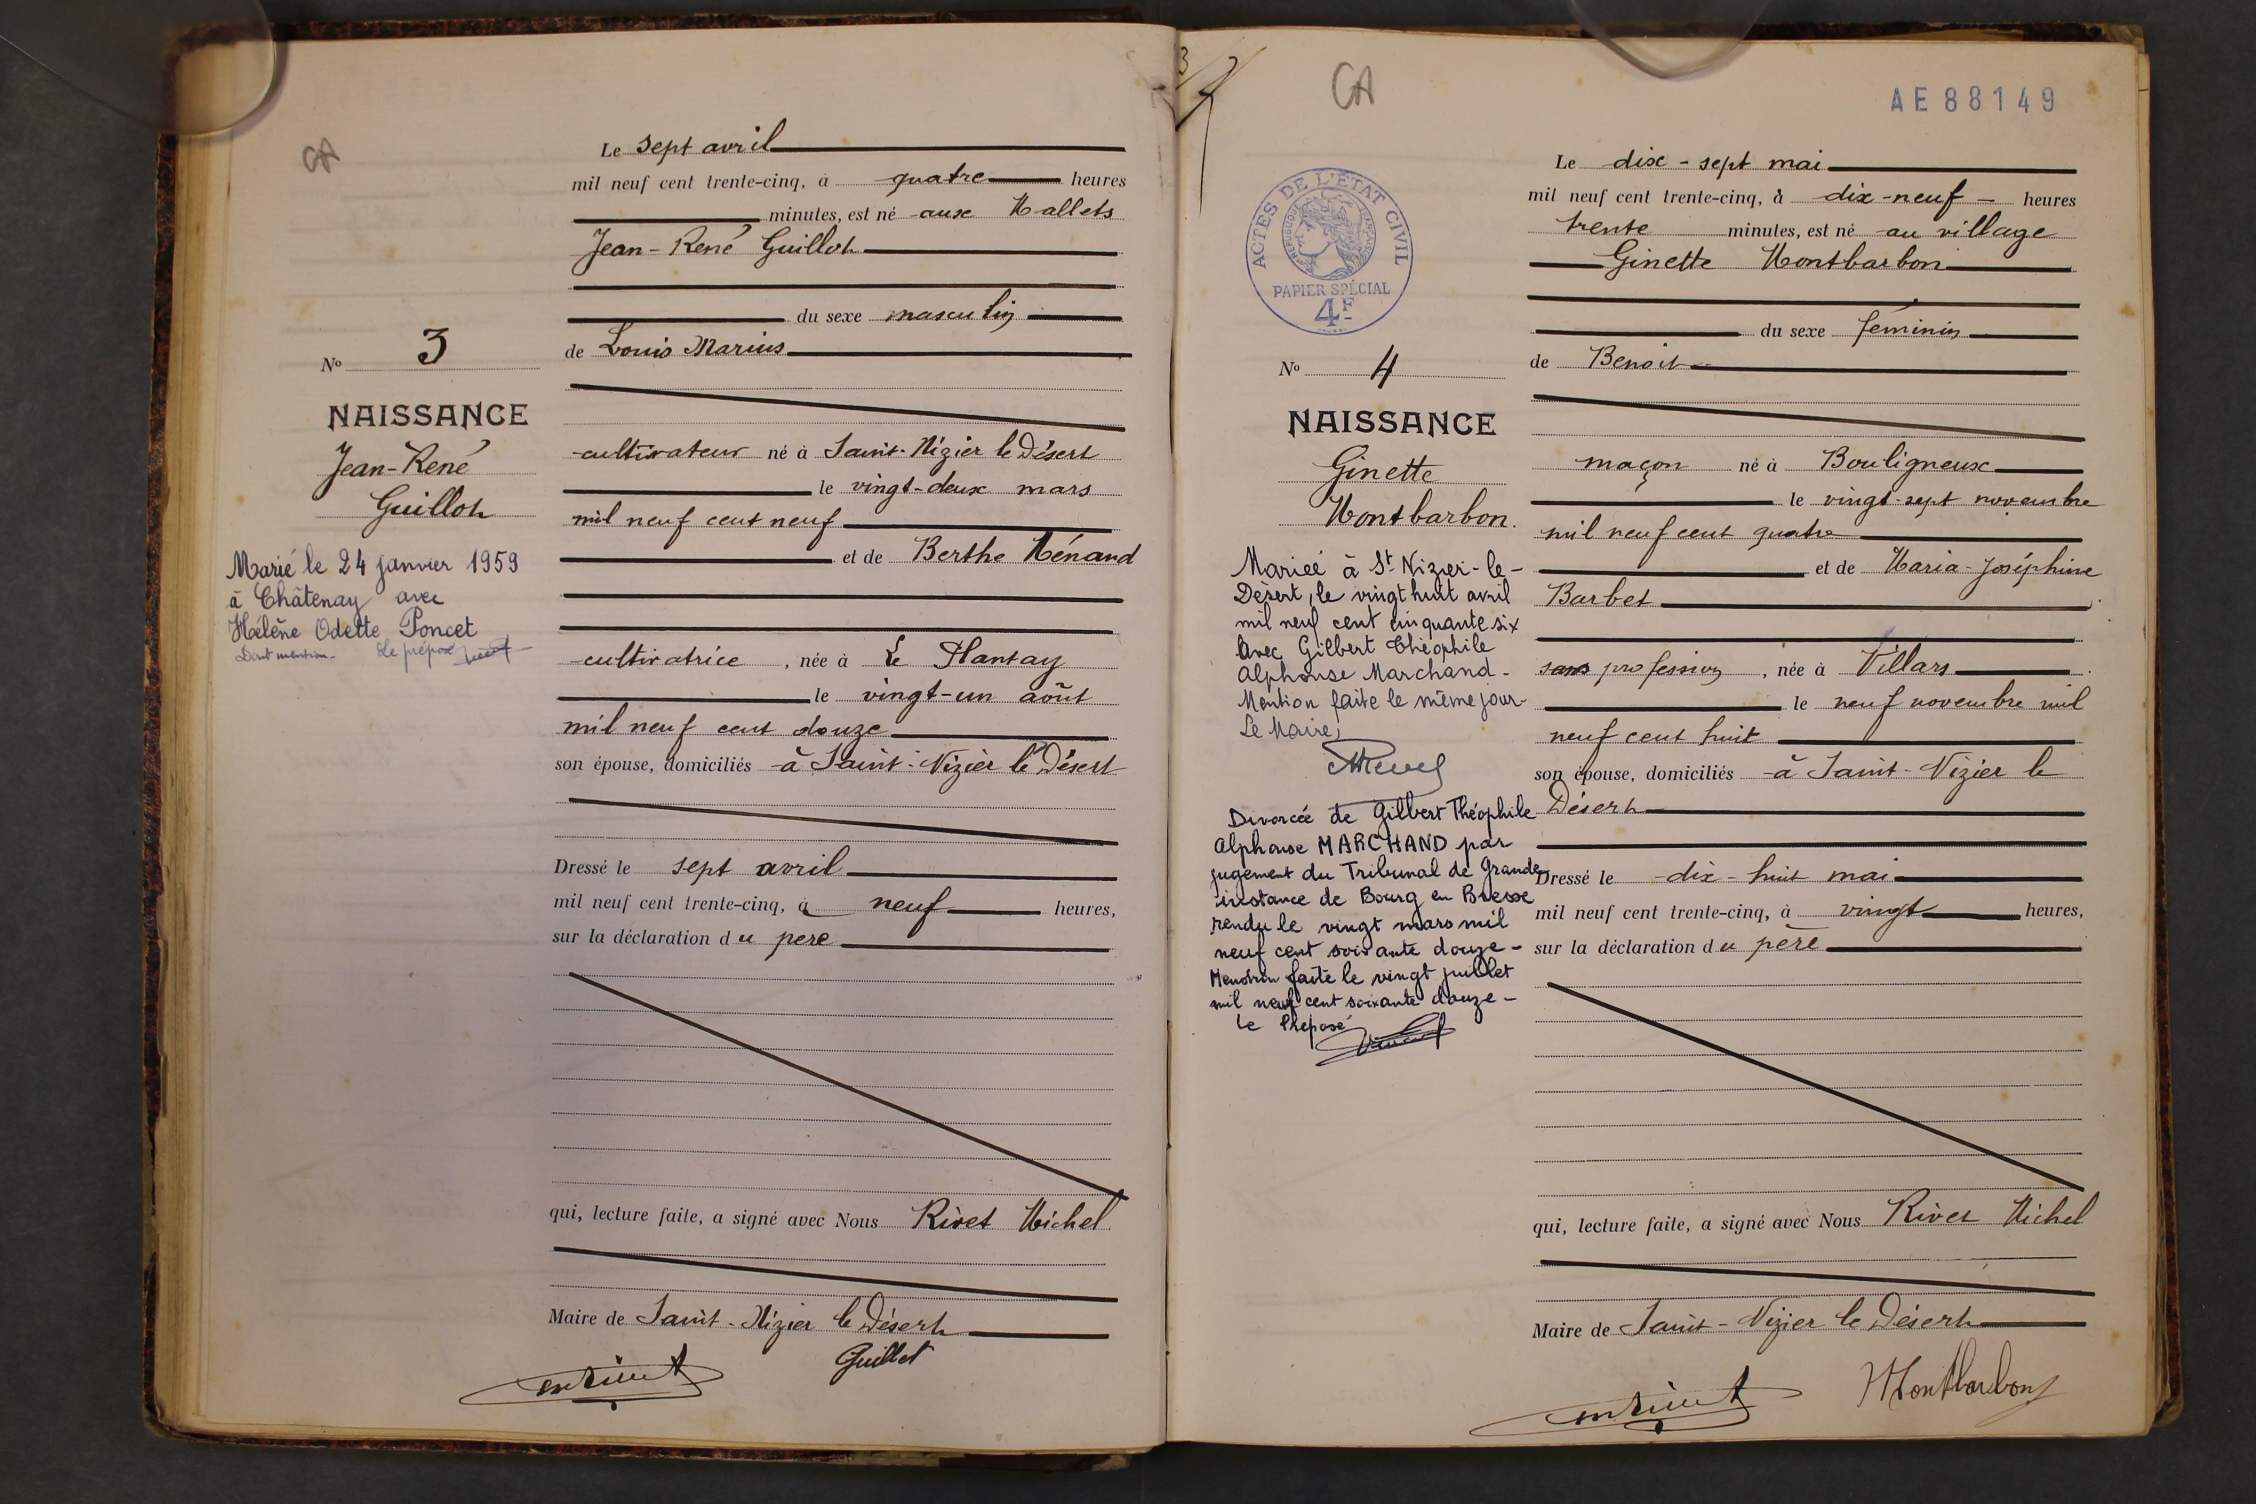 CA
Le sept avril
mil neuf cent trente-cinq, à quatre heures
minutes, est né aux Mallets
Jean-René Guillot
du sexe masculin
No 3
de Louis Marius
NAISSANCE
Jean-René
Guillot
cultivateur né à Saint-Nizier le Désert
le vingt-deux mars
mil neuf cent neuf
et de Berthe Ménand
Marié le 24 janvier 1959
à Châtenay avec
Hélène Odette Poncet
Dont mention. Le préposé
cultivatrice, née à Le Plantay
le vingt-un août
mil neuf cent douze
son épouse, domiciliés à Saint-Nizier le Désert
Dressé le sept avril
mil neuf cent trente-cinq, à neuf heures,
sur la déclaration du pere
qui, lecture faite, a signé avec Nous Rivet Michel
Maire de Saint-Nizier le Désert
Guillot
3
CA
AE88149
ACTES DE L'ÉTAT CIVIL
RÉPUBLIQUE FRANÇAISE
PAPIER SPÉCIAL
4F
Le dix-sept mai
mil neuf cent trente-cinq, à dix-neuf heures
trente minutes, est né au village
Ginette Montbarbon
du sexe féminin
No 4
de Benoit
NAISSANCE
Ginette
Montbarbon.
maçon né à Bouligneux
le vingt-sept novembre
mil neuf cent quatre
et de Maria-Joséphine
Barbet
sans profession, née à Villars
le neuf novembre mil
neuf cent huit
son épouse, domiciliés à Saint-Nizier le
Désert
Mariée à St-Nizier-le-
Désert, le vingt huit avril
mil neuf cent cinquante six
Avec Gilbert Théophile
Alphonse Marchand-
Mention faite le même jour-
Le Maire,
Divorcée de Gilbert Théophile
Alphonse MARCHAND par
jugement du Tribunal de Grande
instance de Bourg en Bresse
rendu le vingt mars mil
neuf cent soixante douze-
Mention faite le vingt juillet
mil neuf cent soixante douze-
Le Préposé
Dressé le dix-huit mai
mil neuf cent trente-cinq, à vingt heures,
sur la déclaration du père
qui, lecture faite, a signé avec Nous Rivet Michel
Maire de Saint-Nizier le Désert
Montbarbon